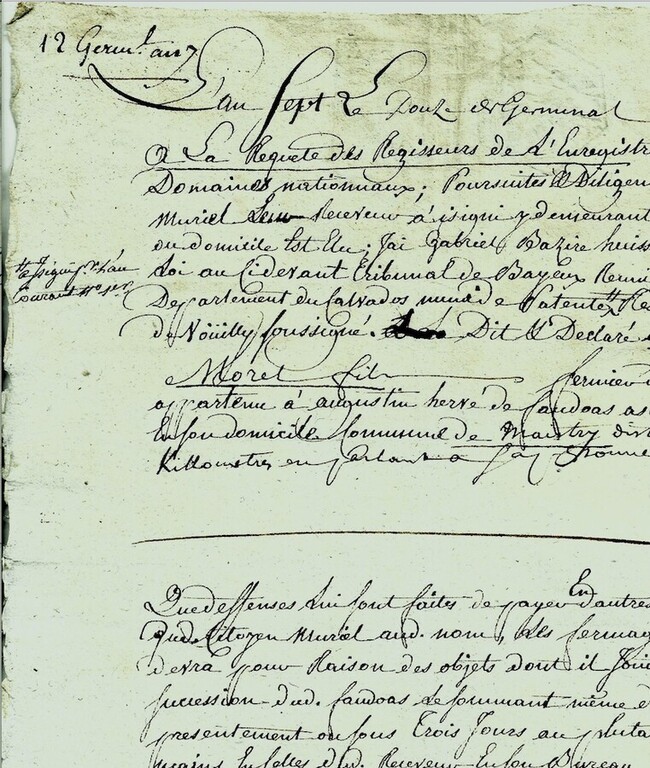 12 Germ.l an 7
L'an Sept Le Douze de Germinal
A La Requete des Regisseurs de L'Enregistr
Domaines nationnaux; Poursuites & Diligen
Muriel Receveur à isigni y demeurant
ou domicile Est Elu; Jai Gabriel Bazire huiss
Loi au Cidevant Tribunal de Bayeux
Departement du Calvados muni de Patente
de Voüilly soussigné. Dit & Declaré
Morel fils fermier
appartenu à augustin hervé de faudoas
En son domicile Commune de Maistry dist
Killometres en parlant a sa personne
signi
Courant
Que deffenses lui sont faites de payer En d'autres
qud. Citoyen Muriel aud. nom, Les fermag
devra pour Raison des objets dont il Joui
succession dud. faudoas Le sommant même
presentement ou sous Trois Jours au pluta
mains En Celles dud. Receveur En son Bureau